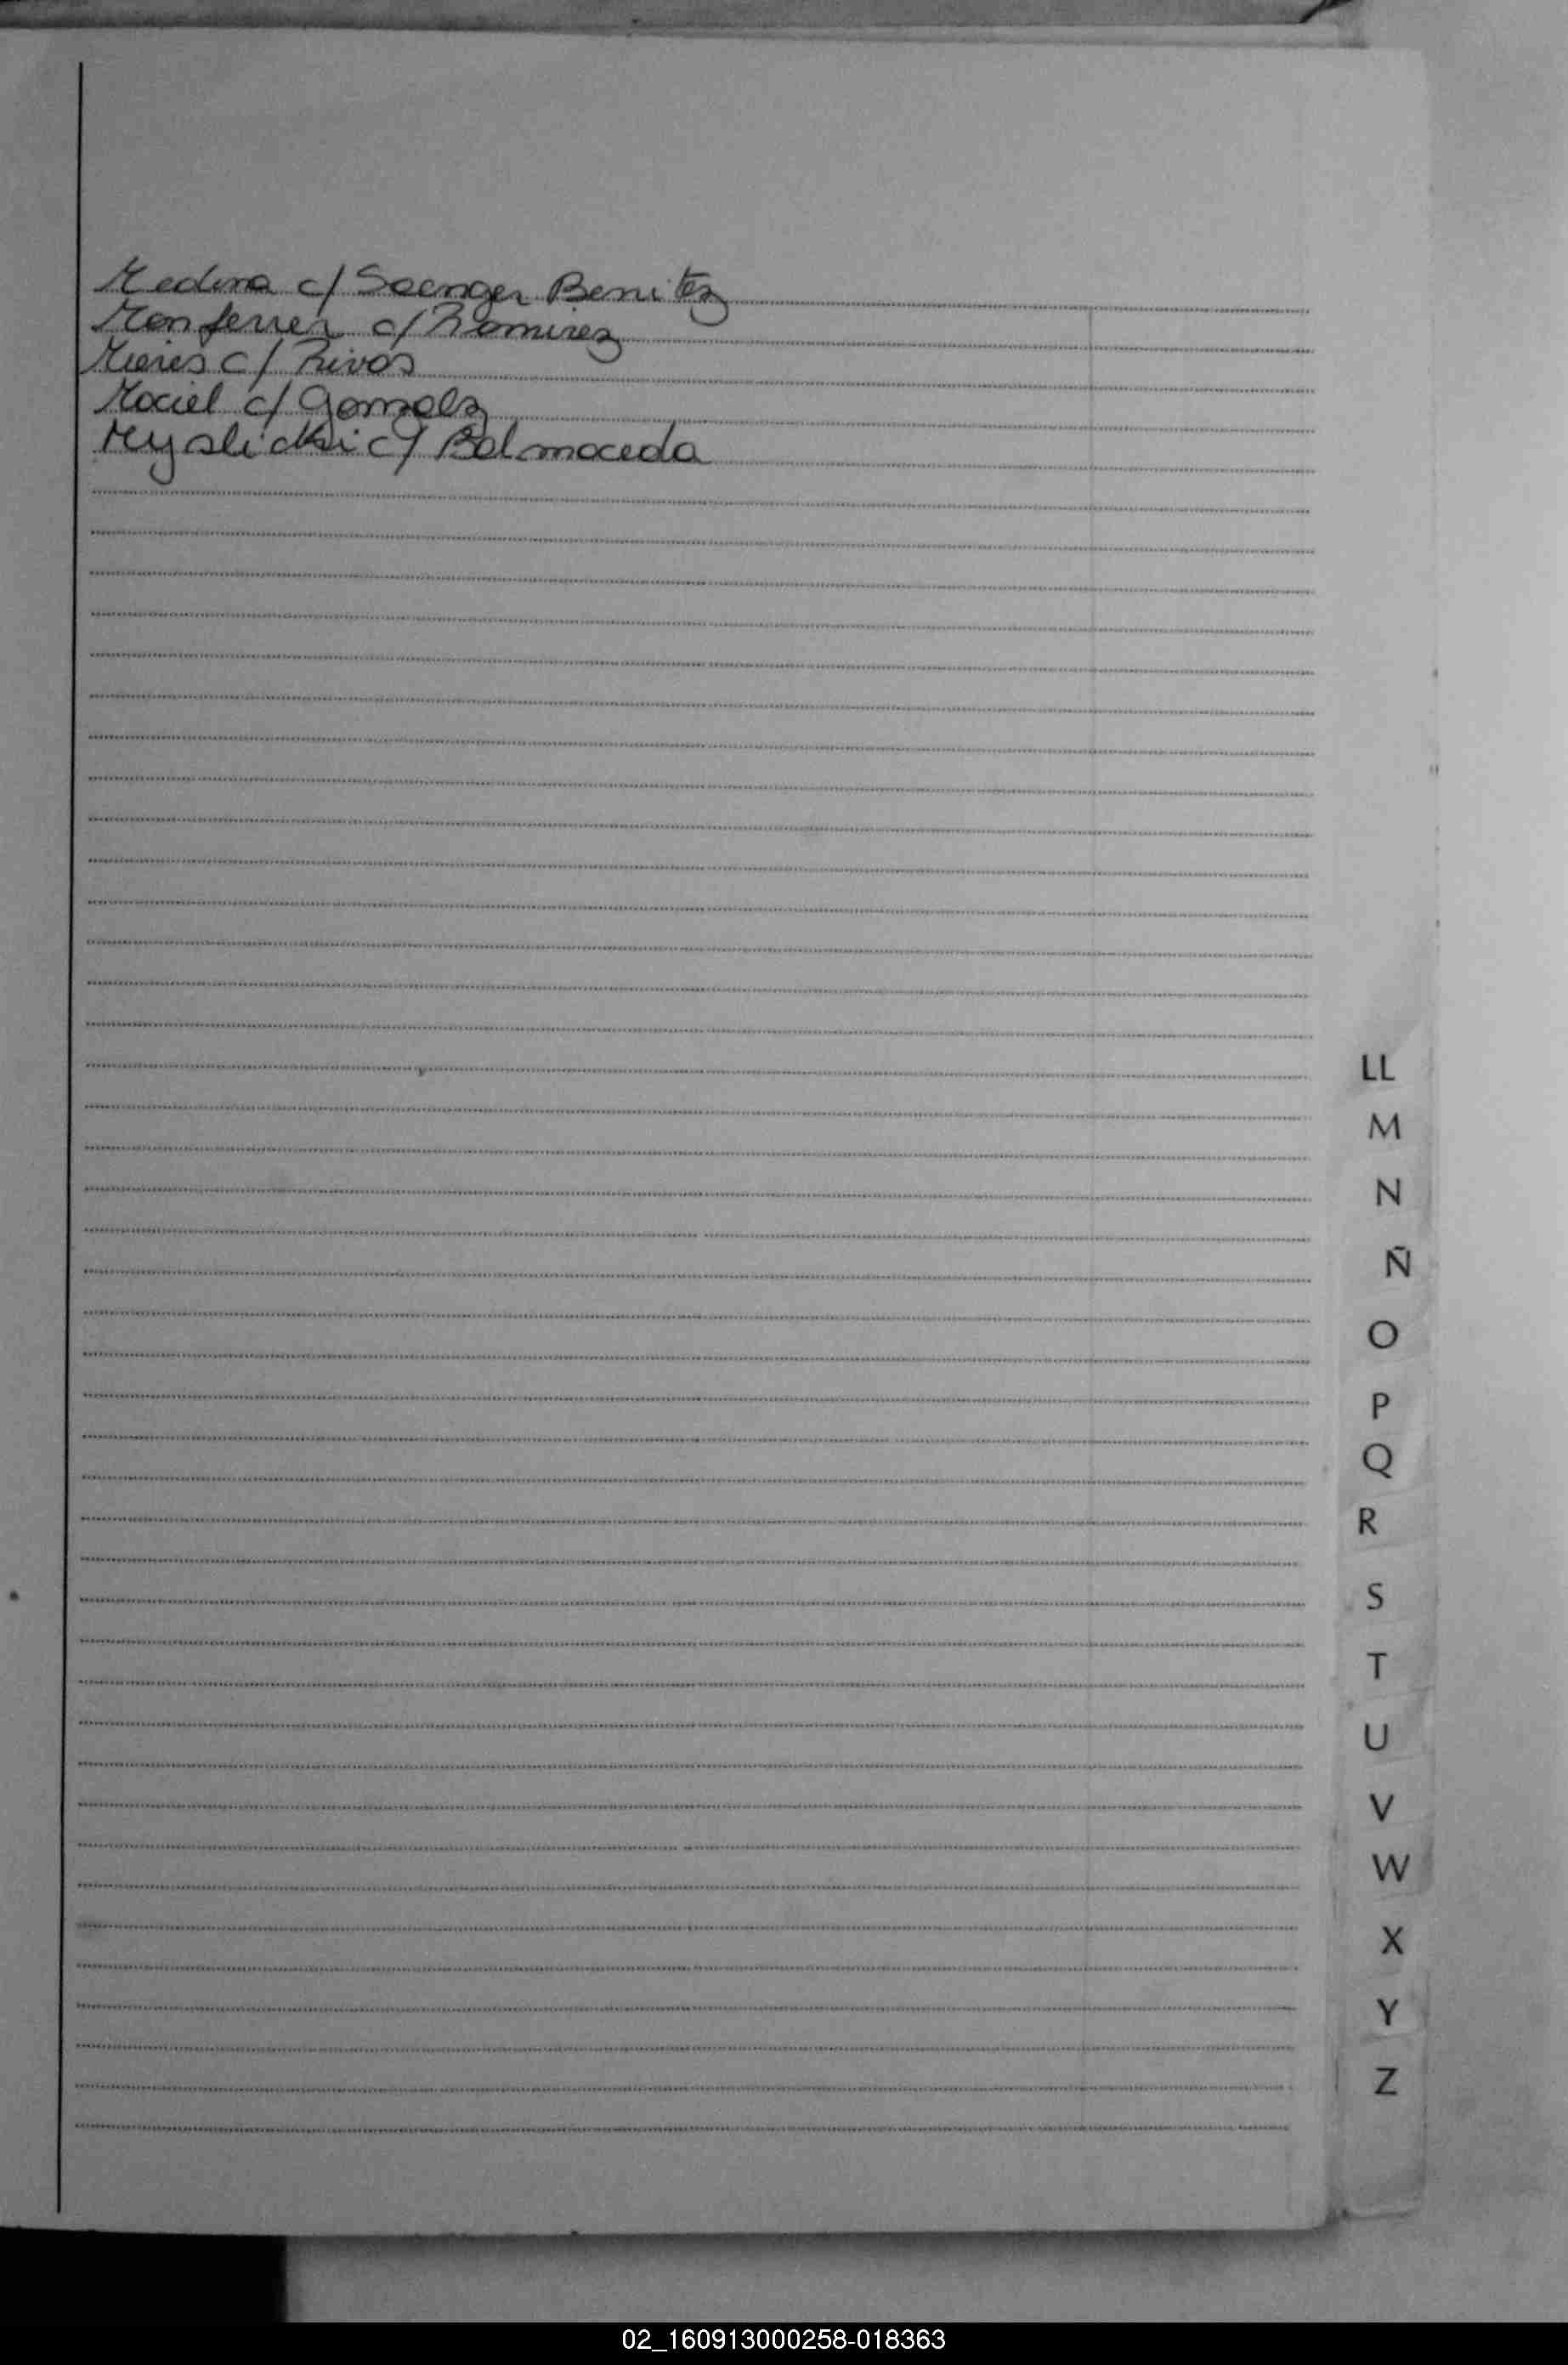 Medina c/ Saenger Benitez
Monferrer c/ Ramirez
Mieres c/ Rivas
Maciel c/ Gonzalz
Myslicki c/ Balmaceda
LL
M
N
Ñ
O
P
Q
R
S
T
U
V
W
X
Y
Z
02_160913000258-018363